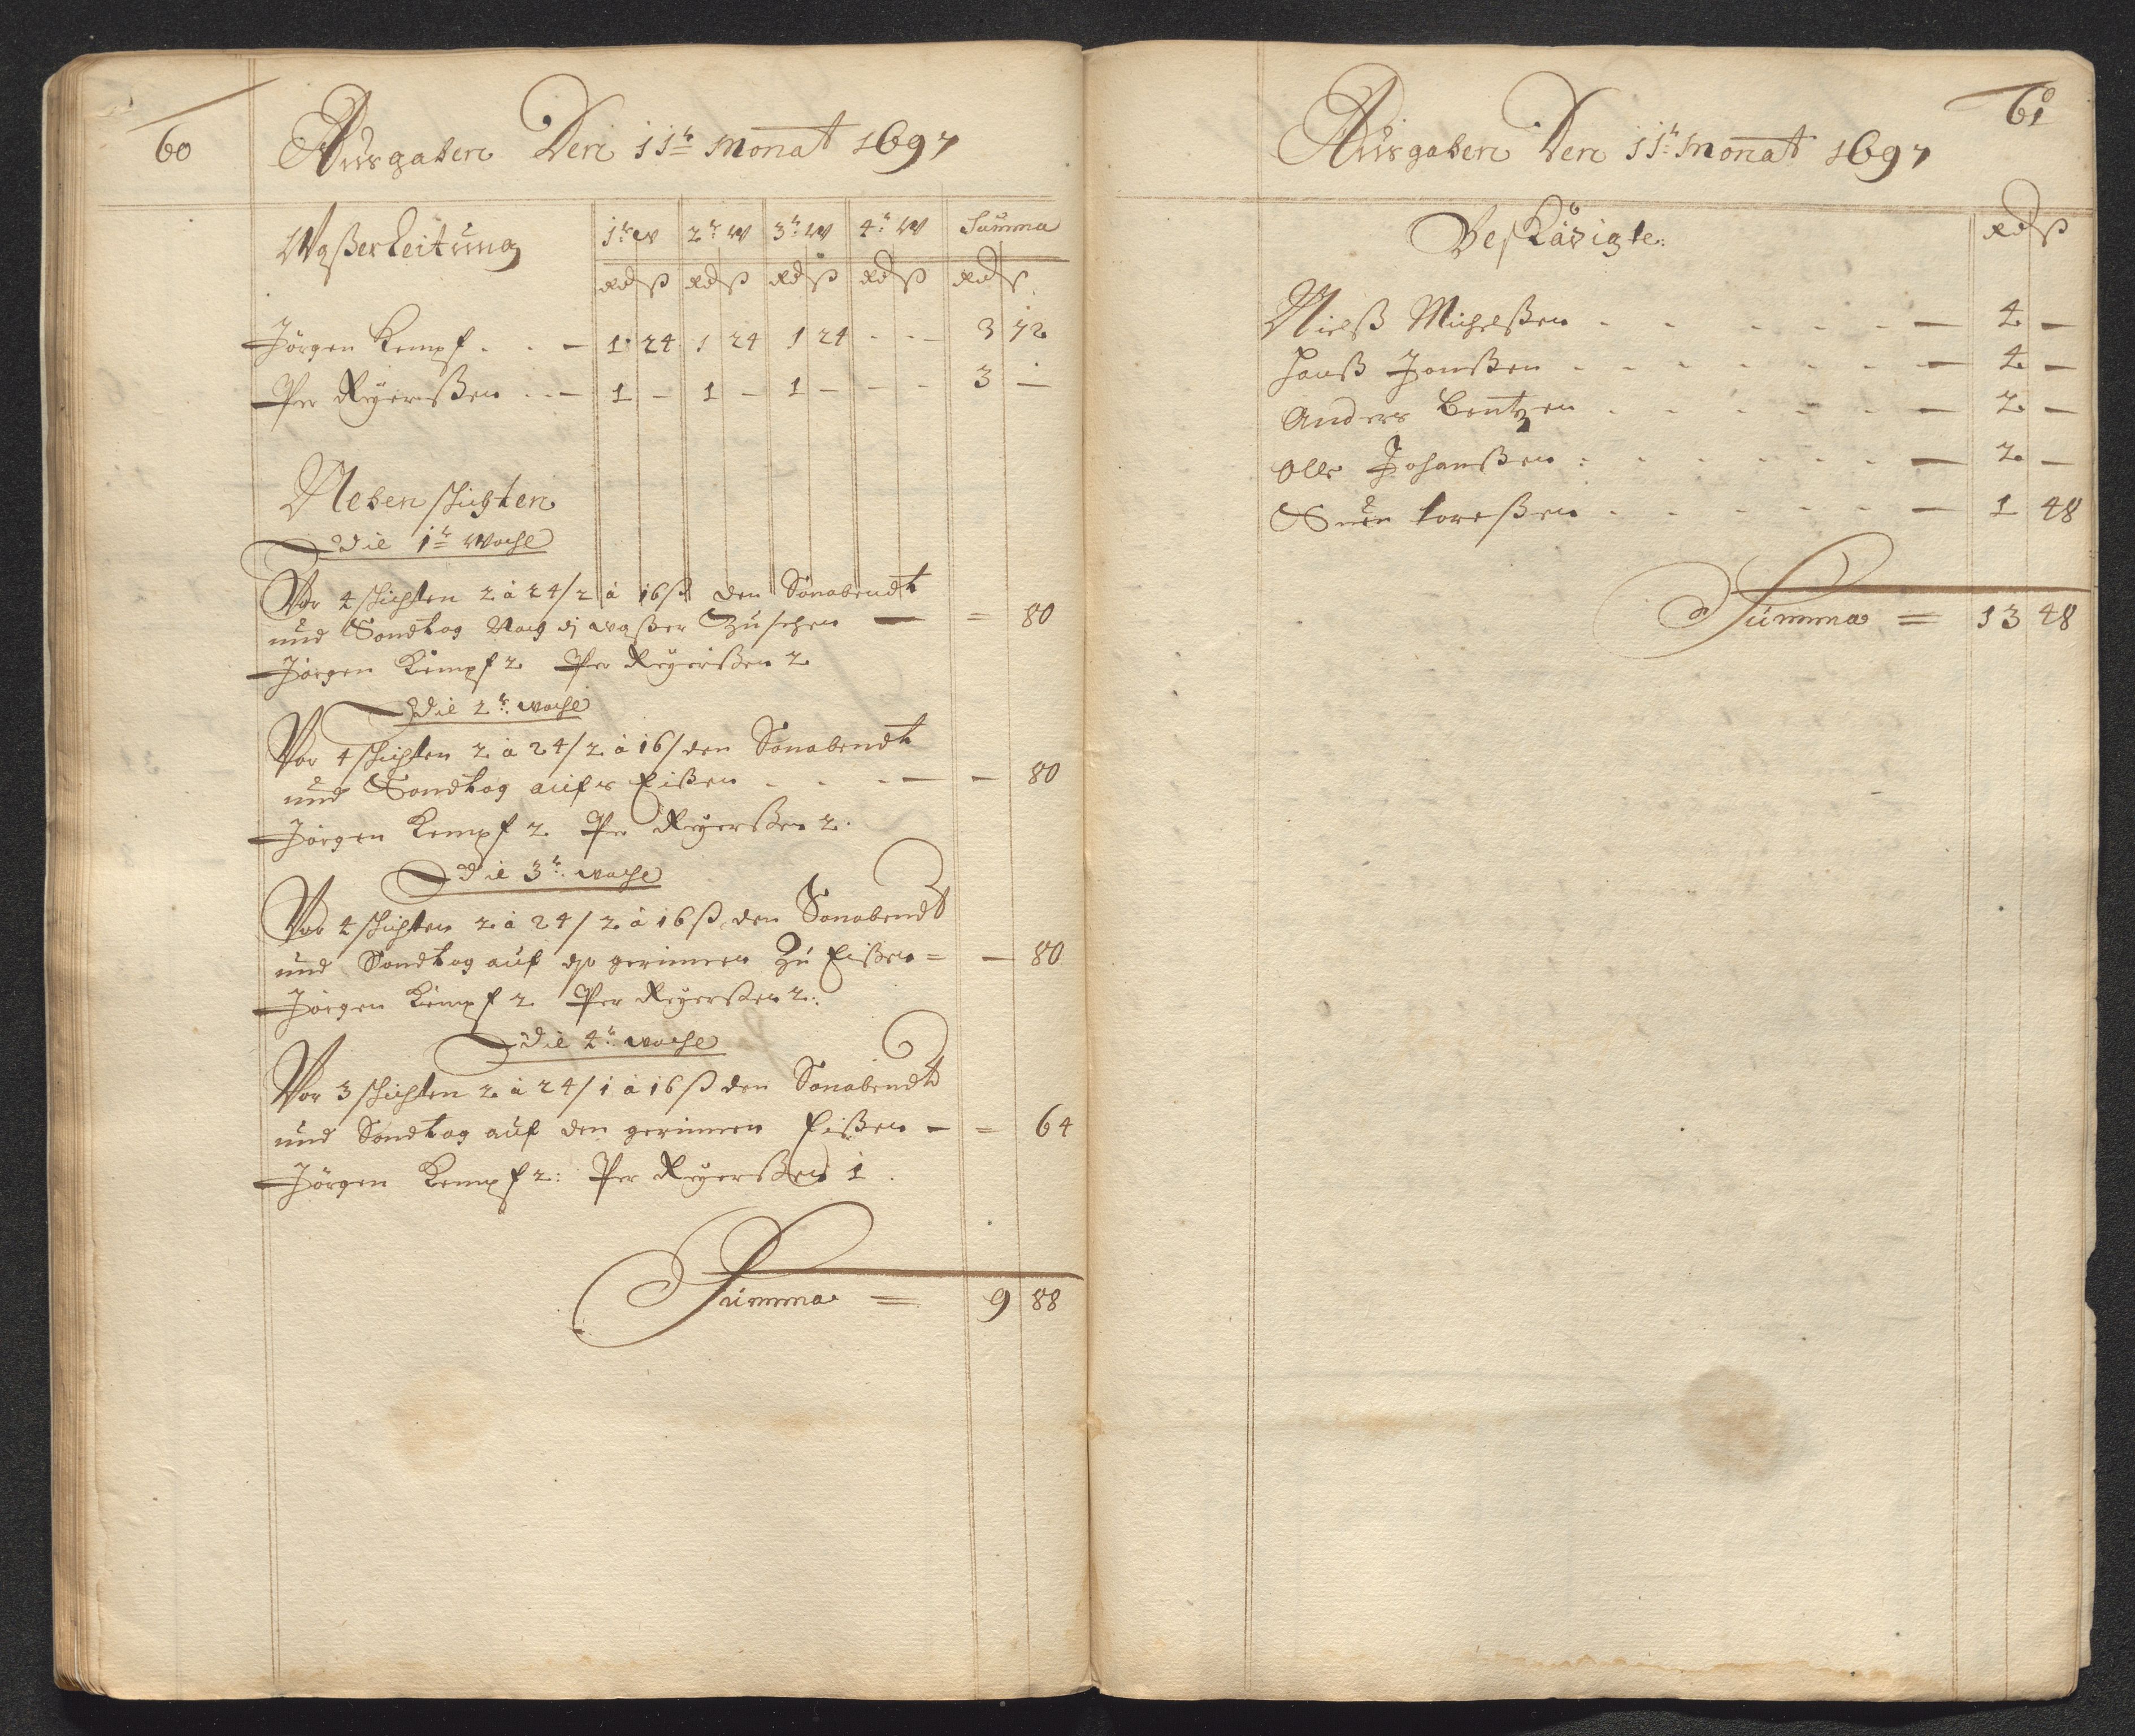 60
Ausgaben Den 11t Monat 1697
Waßerleitung 1t W 2t W 3t W 4t W Summa
Rd ß Rd ß Rd ß Rd ß Rd ß
Jörgen Kempf - 1 24 1 24 1 24 - - 3 72
Per Reÿerßen - 1 - 1 - 1 - - - 3 -
Neben schichten
Die 1t Woche
Vor 4 schichten 2 à 24 / 2 à 16 ß den Sonabendt
und Sondtag Nach dz waßer Zu sehen — = 80
Jörgen Kempf 2 Per Reÿerßen 2
Die 2t woche
Vor 4 schichten 2 à 24 / 2 à 16 / den Sonabendt
und Sondtag aufs Eißen - - - — 80
Jörgen Kempf 2 Per Reÿerßen 2.
Die 3t woche
Vor 4 schichten 2 à 24 / 2 à 16 ß den Sonabendt
und Sondtag auf gerinnen Zu Eißen = — 80
Jörgen Kempf 2 Per Reÿerßen 2:
Die 4t woche
Vor 3 schichten 2 à 24 / 1 à 16 ß den Sonabendt
und Sondtag auf den gerinnen Eißen - = 64
Jörgen Kempf 2: Per Reÿerßen 1.
Summa = 9 88
61
Ausgaben Den 11t Monat 1697
Rd ß
Nielß Michelßen - - - - - — 4 —
Hanß Janßen - - - - - - — 4 —
Anders Bentzen - - - - - — 2 —
Olle Johanßen : - - - - - — 2 —
Toreßen - - - - - — 1 48
Summa = 13 48